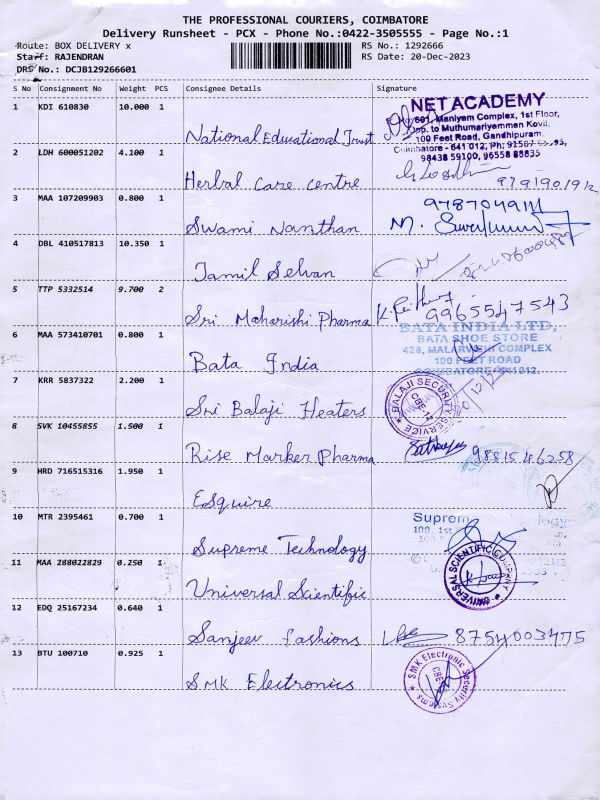 THE PROFESSIONAL COURIERS, COIMBATORE
Delivery Runsheet - PCX - Phone No.:0422-3505555 - Page No.:1
Route: BOX DELIVERY x
RS No.: 1292666
Staff: RAJENDRAN
RS Date: 20-Dec-2023
DRS No.: DCJB129266601
S No Consignment No Weight PCS Consignee Details Signature
1 KDI 610830 10.000 1
NET ACADEMY
601, Maniyam Complex, 1st Floor,
Opp. to Muthumariyamman Kovil,
100 Feet Road, Gandhipuram,
Coimbatore - 641 012, Ph:
98438 59100, 96558 88835
National Educational Trust
2 LDH 600051202 4.100 1
Herbal Care centre
3 MAA 107209903 0.800 1
9787049111
Swami Nanthan
4 DBL 410517813 10.350 1
Tamil Selvan
5 TTP 5332514 9.700 2
Sri Maharishi Pharma
9965547543
BATA INDIA LTD,
BATA SHOE STORE
428, MALARVISHI COMPLEX
100 FEET ROAD
COIMBATORE-641012.
6 MAA 573410701 0.800 1
Bata India
7 KRR 5837322 2.200 1
BALAJI SECURITY SERVICE
CBE-12
Sri Balaji Heaters
8 SVK 10455855 1.500 1
Rise Marker Pharma
9881546258
9 HRD 716515316 1.950 1
Esquire
10 MTR 2395461 0.700 1
Suprem
Supreme Technology
11 MAA 288022829 0.250 1
UNIVERSAL SCIENTIFIC COMPANY
Universal Scientific
12 EDQ 25167234 0.640 1
Sanjeev fashions
8754003475
13 BTU 100710 0.925 1
SMK Electronic Security Systems
CBE
SMK Electronics